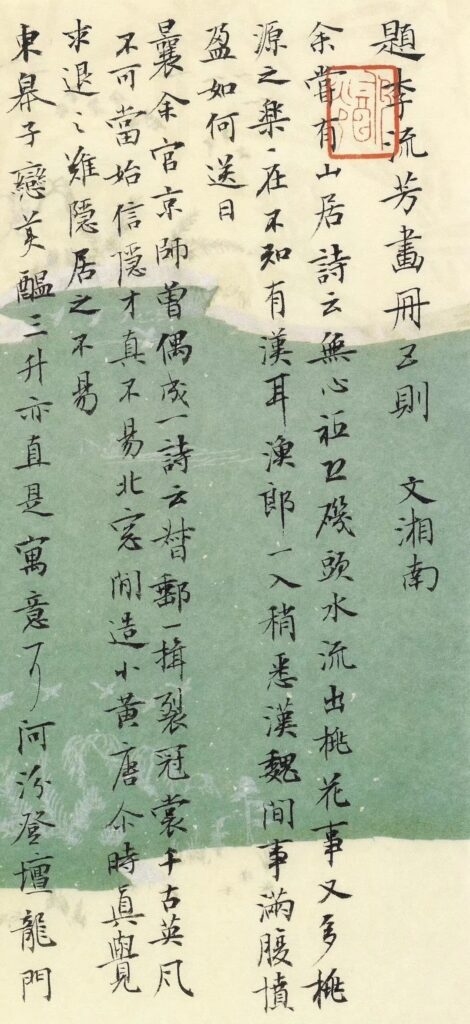 題李流芳畫冊五則 文湘南
余嘗有山居詩云無心祗磯頭水流出桃花事又多桃
源之樂〻在不知有漢耳漁郎一入稍悉漢魏間事滿腹墳
盈如何送日
曩余官京師曾偶成一詩云督郵一揖裂冠裳千古英風
不可當始信隱才真不易北窓閒造小黃唐尒時真覺
求退〻難隱居之不易
東皋子戀美醖三升亦直是寓意河汾登壇龍門